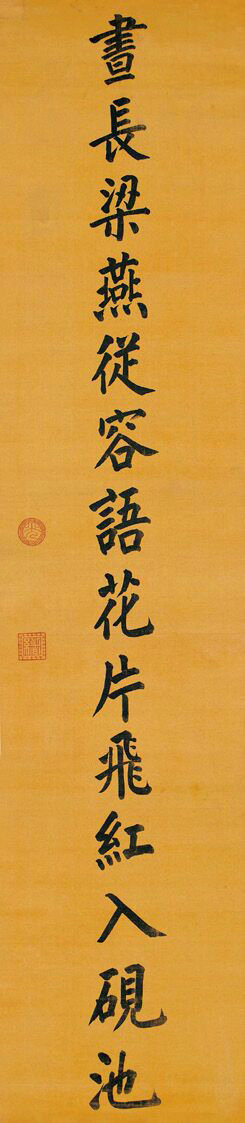 晝長梁燕從容語花片飛紅入硯池